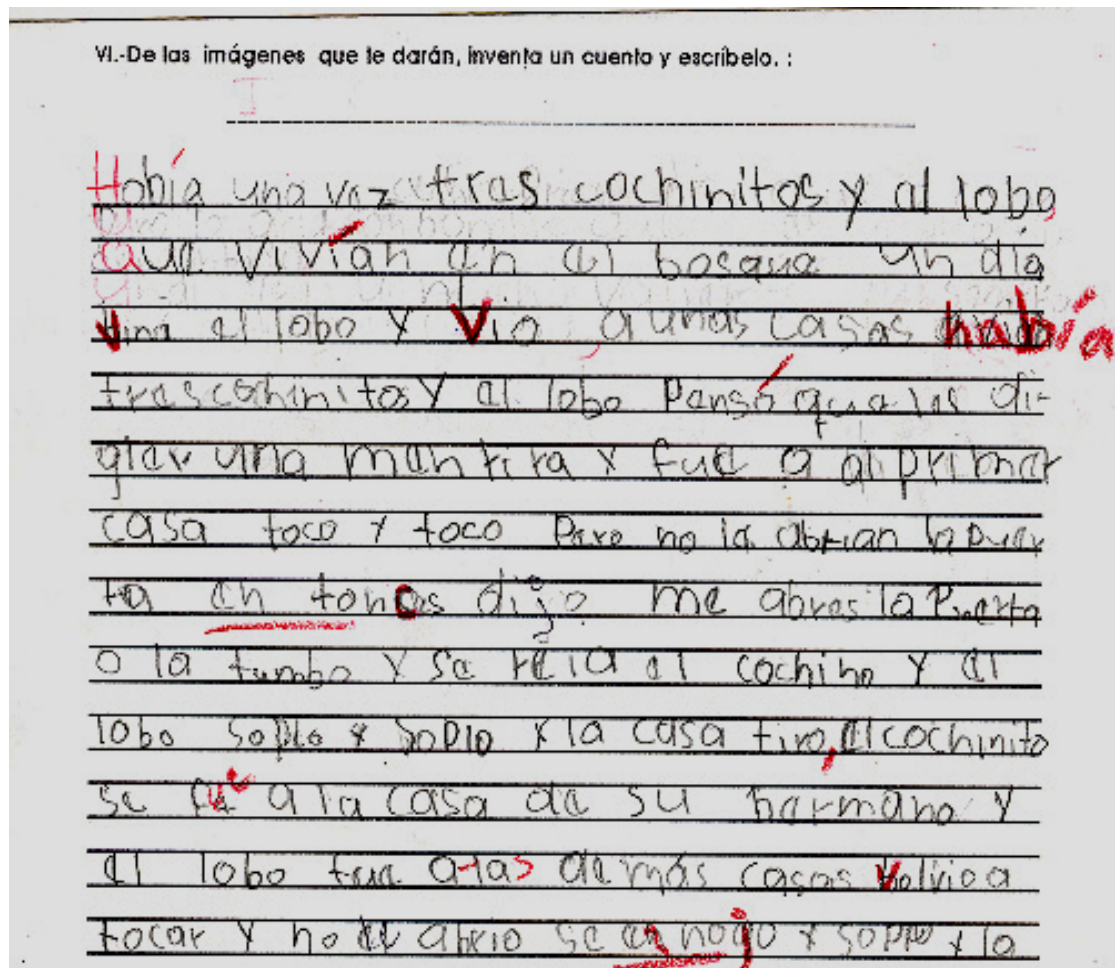 VI.-De las imágenes que te darán, inventa un cuento y escríbelo. :
Había una vez tres cochinitos y el lobo
que vivían en el bosque un día
vino el lobo y vio a unas casas había
tres cochinitos y el lobo Pensó que les di-
gier una mentira y fue a al primer
casa toco y toco Pero no le abrian la puer
ta en tonces dijo me abres la Puerta
o la tumbo y se reia el cochino y el
lobo soplo y soplo y la casa tiro, el cochinito
se fue a la casa de su hermano y
el lobo fue a las demás casas volvio a
tocar y no le abrio se en nojo y soplo y la